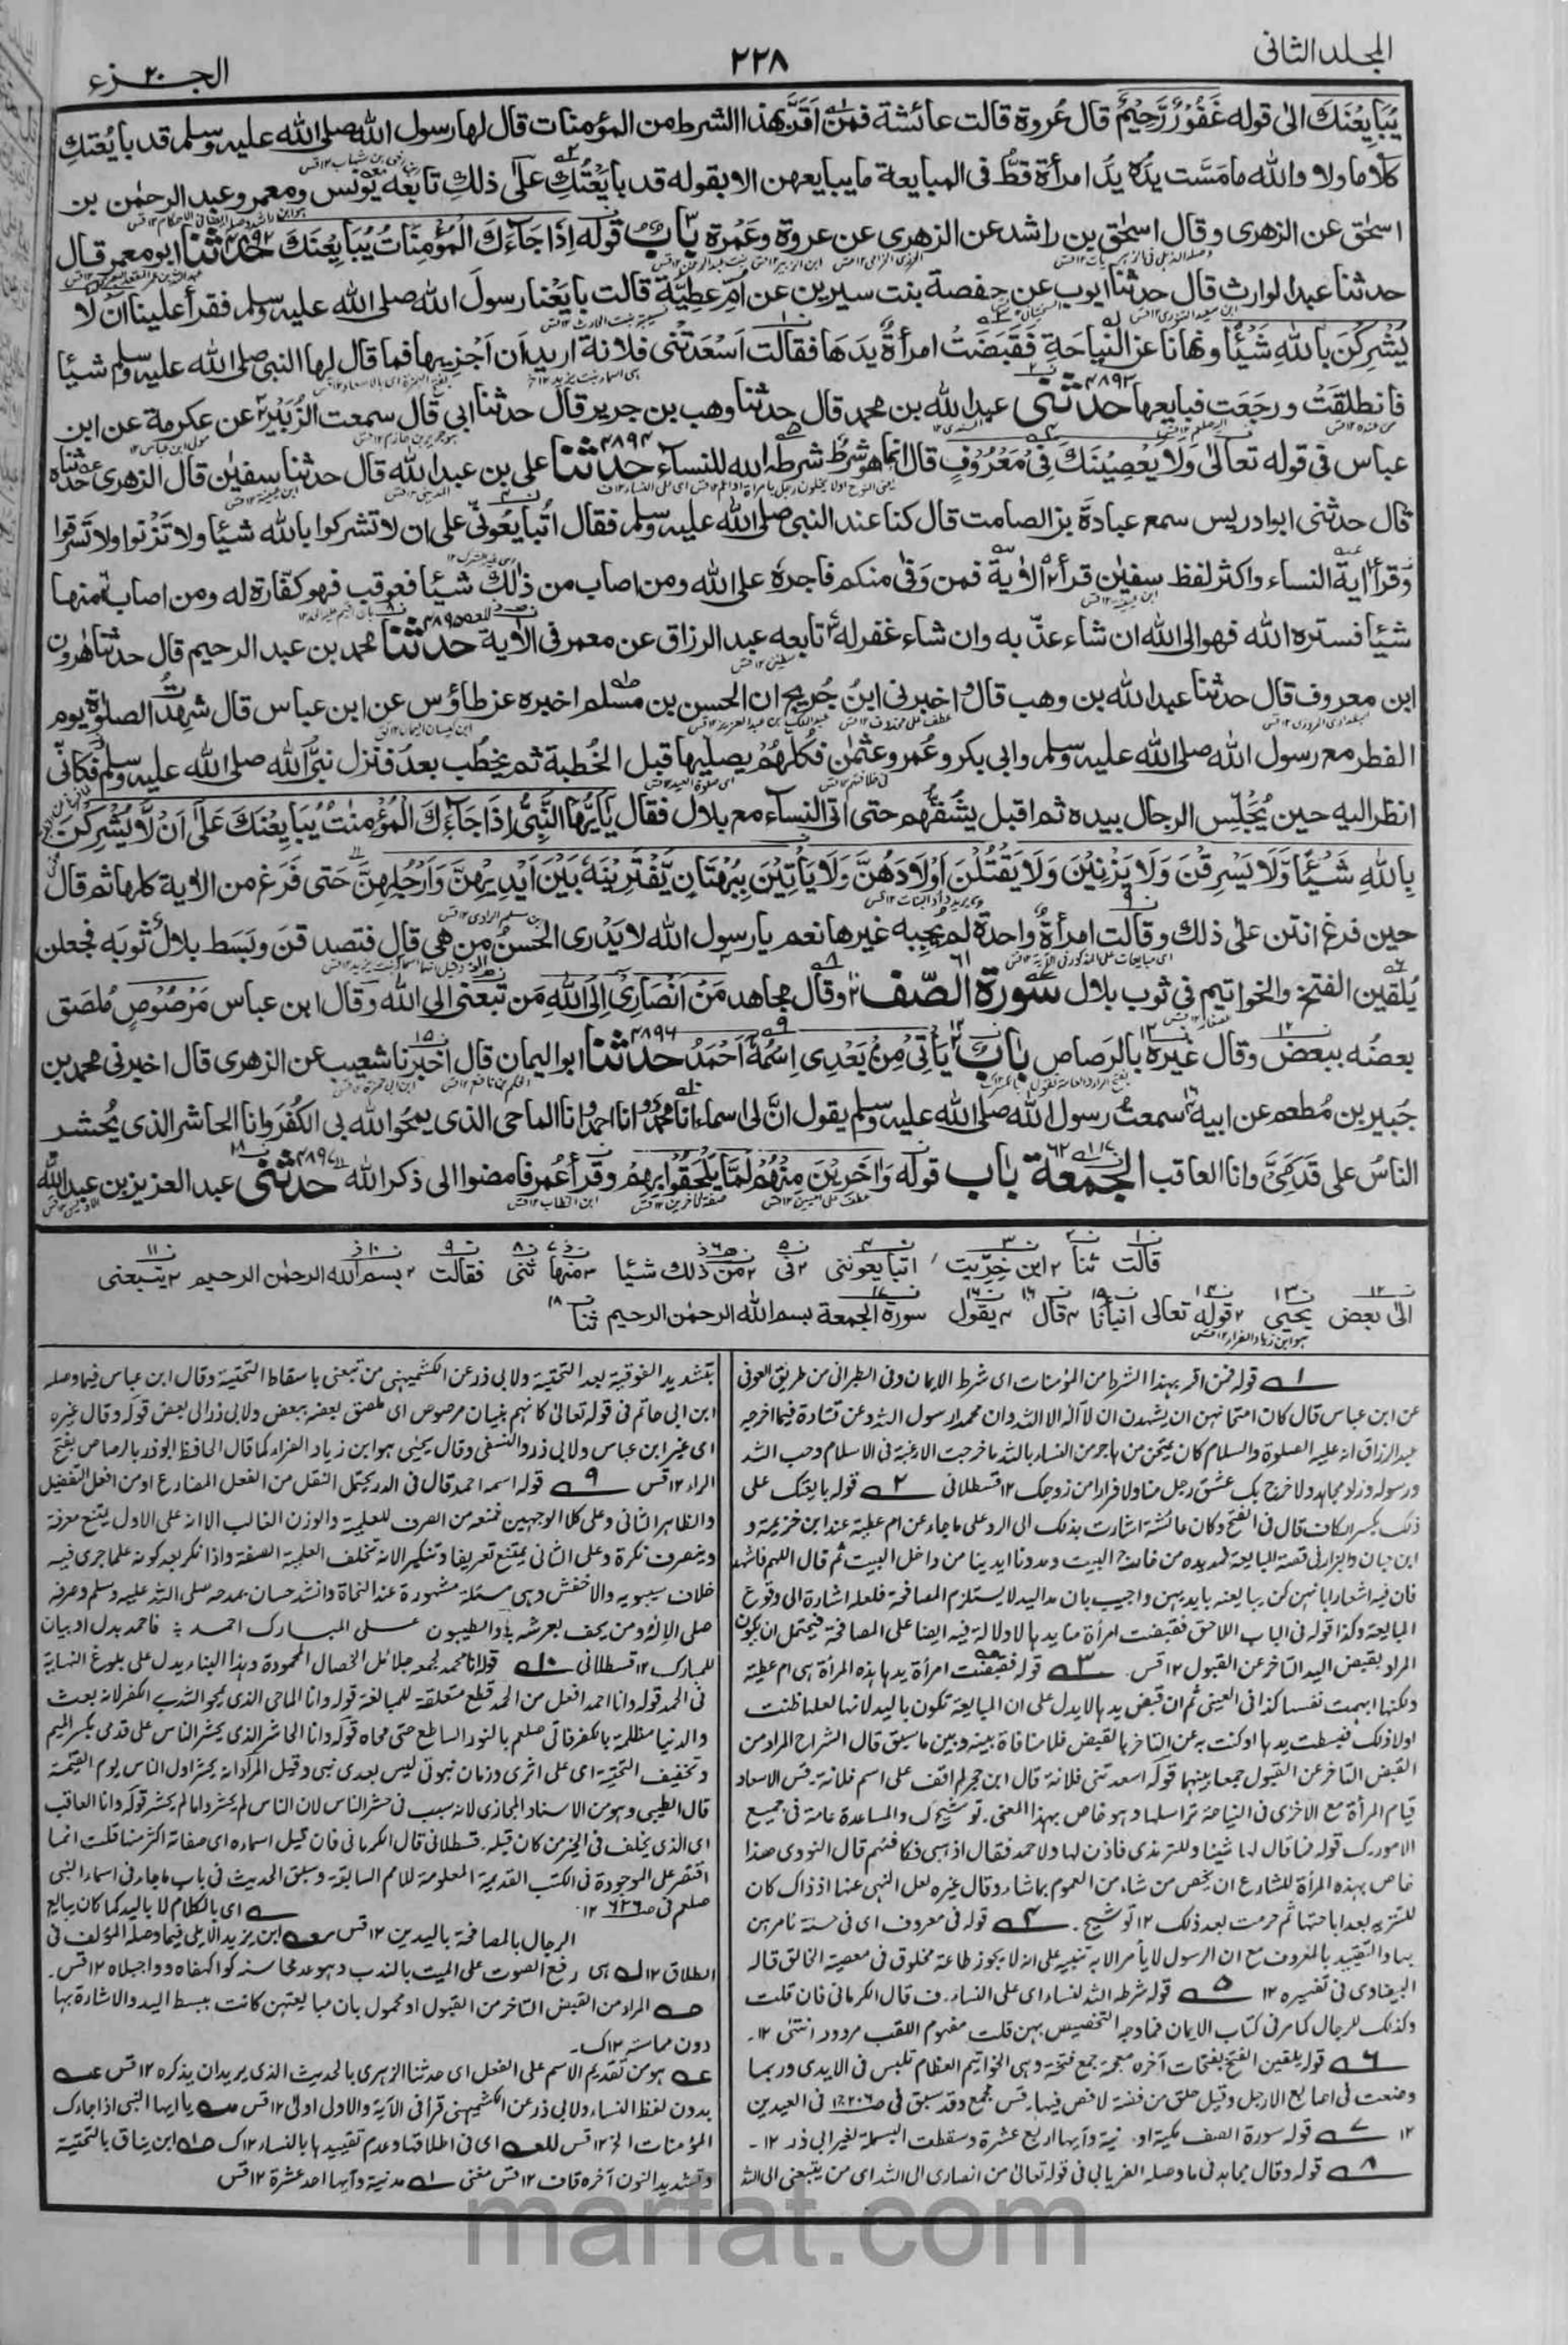 المجلد الثانی
۲۲۸
الجزء ۲۰
يُبَايِعْنَكَ الىٰ قوله غَفُوْرٌ رَّحِيْمٌ قال عُروة قالت عائشة فمن اَقَرَّ بهٰذا الشرط من المؤمنات قال لها رسول الله صلى الله عليه وسلم قد بايعتكِ
كلاما ولا والله ما مَسَّت يدُه يدَ امرأة قطُّ فى المبايعة ما يبايعهن الا بقوله قد بايَعْتُكِ علىٰ ذلكِ تابعه يونس ومعمر وعبد الرحمٰن بن
اسحٰق عن الزهرى وقال اسحٰق بن راشد عن الزهرى عن عروة وعَمْرة باب قوله اِذَا جَآءَكَ الْمُؤْمِنَاتُ يُبَايِعْنَكَ ۴۸۹۲ حدثنا ابو معمر قال
حدثنا عبد الوارث قال حدثنا ايوب عن حفصة بنت سيرين عن اُمِّ عطيَّة قالت بايَعْنا رسولَ الله صلى الله عليه وسلم فقرأ علينا اَنْ لَا
يُشْرِكْنَ بِاللهِ شَيْئًا ونهانا عن النياحةِ فَقَبَضَتْ امرأةٌ يدَها فقالت اَسْعَدَتْنى فلانة اريد اَن اَجْزِيها فما قال لها النبى صلى الله عليه وسلم شيئا
فانطلقَتْ ورجَعَت فبايعها ۴۸۹۳ حدثنى عبد الله بن محمد قال حدثنا وهب بن جرير قال حدثنا ابى قال سمعت الزُبَيْر عن عكرمة عن ابن
عباس فى قوله تعالىٰ وَلَا يَعْصِيْنَكَ فِىْ مَعْرُوْفٍ قال انما هو شرطٌ شرطه الله للنساء ۴۸۹۴ حدثنا على بن عبد الله قال حدثنا سفيٰن قال الزهرى حدثناه
قال حدثنى ابو ادريس سمع عبادةَ بن الصامت قال كنا عند النبى صلى الله عليه وسلم فقال اَتُبايعُونّى على ان لا تشركوا بالله شيئا ولا تَزْنوا ولا تَسْرقوا
وقرأ اٰية النساء واكثر لفظ سفيٰن قرأ الاٰية فمن وَفىٰ منكم فاجره على الله ومن اصاب من ذٰلك شيئا فعوقب فهو كفّارة له ومن اصاب منها
شيئا فستره الله فهو الى الله ان شاء عذّبه وان شاء غفر له تابعه عبد الرزاق عن معمر فى الاٰية ۴۸۹۵ حدثنا محمد بن عبد الرحيم قال حدثنا هٰرون
ابن معروف قال حدثنا عبد الله بن وهب قال واخبرنى ابنُ جُريج ان الحسن بن مسلم اخبره عن طاوٗس عن ابن عباس قال شهِدتُ الصلوٰة يوم
الفطر مع رسول الله صلى الله عليه وسلم وابى بكر وعُمر وعثمٰن فكلهُمْ يصليها قبل الخُطبة ثم يخطُب بعدُ فنزل نبىُّ الله صلى الله عليه وسلم فكانّى
انظر اليه حين يُجَلِّس الرجال بيده ثم اقبل يشُقّهم حتى اتى النساء مع بلال فقال يٰاَيُّهَا النَّبِىُّ اِذَا جَآءَكَ الْمُؤْمِنٰتُ يُبَايِعْنَكَ عَلٰٓى اَنْ لَّا يُشْرِكْنَ
بِاللهِ شَيْئًا وَّلَا يَسْرِقْنَ وَلَا يَزْنِيْنَ وَلَا يَقْتُلْنَ اَوْلَادَهُنَّ وَلَا يَأْتِيْنَ بِبُهْتَانٍ يَّفْتَرِيْنَهٗ بَيْنَ اَيْدِيْهِنَّ وَاَرْجُلِهِنَّ حتى فَرَغ من الاٰية كلها ثم قال
حين فرغ انتن علىٰ ذلك وقالت امرأةٌ واحدة لم يُجِبه غيرها نعم يا رسول الله لا يَدْرى الحَسنُ من هى قال فتصدقنَ وبَسَط بلالٌ ثوبَه فجعلن
يُلقين الفتخَ والخواتيم فى ثوب بلال سورة الصّف وقال مجاهد مَنْ اَنْصَارِىْ اِلَى اللهِ مَن تبعنى الى الله وقال ابن عباس مَرْصُوْصٍ مُلصَق
بعضُه ببعض وقال غيره بالرَصاص باب يَاْتِىْ مِنْۢ بَعْدِى اسْمُهٗٓ اَحْمَدُ ۴۸۹۶ حدثنا ابو اليمان قال اخبرنا شعيب عن الزهرى قال اخبرنى محمد بن
جُبير بن مُطعم عن ابيه سمعت رسول الله صلى الله عليه وسلم يقول انَّ لى اسماء انا محمد وانا احمد وانا الماحى الذى يمحُو الله بى الكُفْرَ وانا الحاشر الذى يُحشر
الناسُ على قَدَمَىَّ وانا العاقب الجمعة باب قوله وَاٰخَرِيْنَ مِنْهُمْ لَمَّا يَلْحَقُوْا بِهِمْ وقرأ عُمر فامضوا الى ذكر الله ۴۸۹۷ حدثنى عبد العزيز بن عبد الله
قالت ثنا ابن خِرِّيت اتبايعوننى فى من ذلك شيئا منها ثنى فقالت بسم الله الرحمٰن الرحيم يتبعنى
الىٰ بعض يحيى قوله تعالى انبأنا قال يقول سورة الجمعة بسم الله الرحمٰن الرحيم ثنا
۱ قوله فمن اقر بهذا الشرط من المؤمنات اى شرط الايمان وفى الطبرانى من طريق العوفى
عن ابن عباس قال كان امتحانهن ان يشهدن ان لا اله الا الله وان محمدا رسول الله وعن قتادة فيما اخرجه
عبد الرزاق انه عليه الصلوة والسلام كان يمتحن من هاجر من النساء بالله ما خرجت الا رغبة فى الاسلام وحب الله
ورسوله وزاد مجاهد ولا خرج بك عشق رجل منا ولا فرارا من زوجك ۱۲ قسطلانى ۲ قوله بايعتك على
ذلك بكسر الكاف قال فى الفتح وكان عائشة اشارت بذلك الى الرد على ما جاء عن ام عطية عند ابن خزيمة و
ابن حبان والبزار فى قصة المبايعة فمد يده من خارج البيت ومددنا ايدينا من داخل البيت ثم قال اللهم فاشهد
فان فيه اشعارا بانهن كن يبايعنه بايديهن واجيب بان مد اليد لا يستلزم المصافحة فلعله اشارة الى وقوع
المبايعة وكذا قوله فى الباب اللاحق فقبضت امرأة منا يدها لا دلالة فيه ايضا على المصافحة فيحتمل ان يكون
المراد بقبض اليد التاخر عن القبول ۱۲ قس ۳ قوله فقبضت امرأة يدها هذه المرأة هى ام عطية
ولكنها ابهمت نفسها كذا فى العينى ثم ان قبض يدها لا يدل على ان المبايعة تكون باليد لانها لعلها ظنت
اولا ذلك فبسطت يدها او كنت به عن التاخر بالقبض فلا منافاة بينه وبين ما سبق قال الشراح المراد من
القبض التاخر عن القبول جمعا بينهما قوله اسعدتنى فلانة قال ابن حجر لم اقف على اسم فلانة قس الاسعاد
قيام المرأة مع الاخرى فى النياحة تراسلها وهو خاص بهذا المعنى توشيح ك والمساعدة عامة فى جميع
الامور ك قوله فما قال لها شيئا وللترمذى فاذن لها ولاحمد فقال اذهبى فكافئهم قال النووى هذا
خاص بهذه المرأة للشارع ان يخص من شاء من العموم بما شاء وقال غيره لعل النهى عنها اذ ذاك كان
للتنزيه بعد اباحتها ثم حرمت بعد ذلك ۱۲ توشيح ۴ قوله فى معروف اى فى حسنة تامرهن
بها والتقييد بالمعروف مع ان الرسول لا يأمر الا به تنبيه على انه لا يجوز طاعة مخلوق فى معصية الخالق قاله
البيضاوى فى تفسيره ۱۲ ۵ قوله شرطه الله لنساء اى على النساء ف قال الكرمانى فان قلت
وكذلك للرجال كما مر فى كتاب الايمان فما وجه التخصيص بهن قلت مفهوم اللقب مردود انتهى ۱۲
۶ قوله يلقين الفتخ بفتحات آخره معجمة جمع فتخة وهى الخواتيم العظام تلبس فى الايدى وربما
وضعت فى اصابع الارجل وقيل حلق من فضة لا فص فيها قس مجمع وقد سبق فى العيدين
۱۲ ۷ قوله سورة الصف مكية او مدنية وآيها اربع عشرة وسقطت البسملة لغير ابى ذر ۱۲
۸ قوله وقال مجاهد فى ما وصله الفريابى فى قوله تعالى من انصارى الى الله اى من يتبعنى الى الله
بتشديد الفوقية بعد التحتية ولابى ذر عن الكشميهنى من تبعنى باسقاط التحتية وقال ابن عباس فيما وصله
ابن ابى حاتم فى قوله تعالى كانهم بنيان مرصوص اى ملصق بعضه ببعض ولابى ذر الى بعض قوله وقال غيره
اى غير ابن عباس ولابى ذر والنسفى وقال يحيى هو ابن زياد الفراء كما قال الحافظ ابو ذر بالرصاص بفتح
الراء ۱۲ قس ۹ قوله اسمه احمد قال فى الدر يحتمل النقل من الفعل المضارع او من افعل التفضيل
والظاهر الثانى وعلى كلا الوجهين فمنعه من الصرف للعلمية والوزن الغالب الا انه على الاول يمتنع معرفة
وينصرف نكرة وعلى الثانى يمتنع تعريفا وتنكيرا لانه تخلف العلمية الصفة واذا نكر بعد كونه علما جرى فيه
خلاف سيبويه والاخفش وهى مسئلة مشهورة عند النحاة وانشد حسان يمدحه صلى الله عليه وسلم وصرفه
صلى الاله ومن يحف بعرشه والطيبون على المبارك احمد فاحمد بدل او بيان
للمبارك ۱۲ قسطلانى ۱۰ قوله انا محمد لجمعه جلائل الخصال المحمودة وهذا البناء يدل على بلوغ النهاية
فى الحمد قوله وانا احمد افعل من الحمد قطع متعلقه للمبالغة قوله وانا الماحى الذى يمحو الله بى الكفر لانه بعث
والدنيا مظلمة بالكفر فاتى صلعم بالنور الساطع حتى محاه قوله وانا الحاشر الذى يحشر الناس على قدمى بكسر الميم
وتخفيف التحتية اى على اثرى وزمان نبوتى ليس بعدى نبى وقيل المراد انه يحشر اول الناس يوم القيمة
قال الطيبى وهو من الاسناد المجازى لانه سبب فى حشر الناس لان الناس لم يحشروا ما لم يحشر قوله وانا العاقب
اى الذى يخلف فى الخير من كان قبله قسطلانى قال الكرمانى فان قيل اسماءه اى صفاته اكثر منها قلت انما
اقتصر على الموجودة فى الكتب القديمة المعلومة للامم السابقة وسبق الحديث فى باب ما جاء فى اسماء النبى
صلعم فى ۱۲ اى بالكلام لا باليد كما كان يبايع
الرجال بالمصافحة باليدين ۱۲ قس ابن يزيد الايلى فيما وصله المؤلف فى
الطلاق ۱۲ هى رفع الصوت على الميت بالندب وهو عد محاسنه كواكهفاه وواجبلاه ۱۲ قس
المراد من القبض التاخر من القبول او محمول بان مبايعتهن كانت ببسط اليد والاشارة بها
دون مماسة ۱۲ ك
هو من تقديم الاسم على الفعل اى حدثنا الزهرى بالحديث الذى يريد ان يذكره ۱۲ قس
بدون لفظ النساء ولابى ذر عن الكشميهنى قرأ فى الآية والاولى اولى ۱۲ قس يا ايها النبى اذا جاءك
المؤمنات الخ ۱۲ قس اى فى اطلاقها وعدم تقييدها بالنساء ۱۲ ك ابن يناق بالتحتية
وتشديد النون آخره قاف ۱۲ قس مغنى مدنية وآيها احد عشرة ۱۲ قس
marfat.com